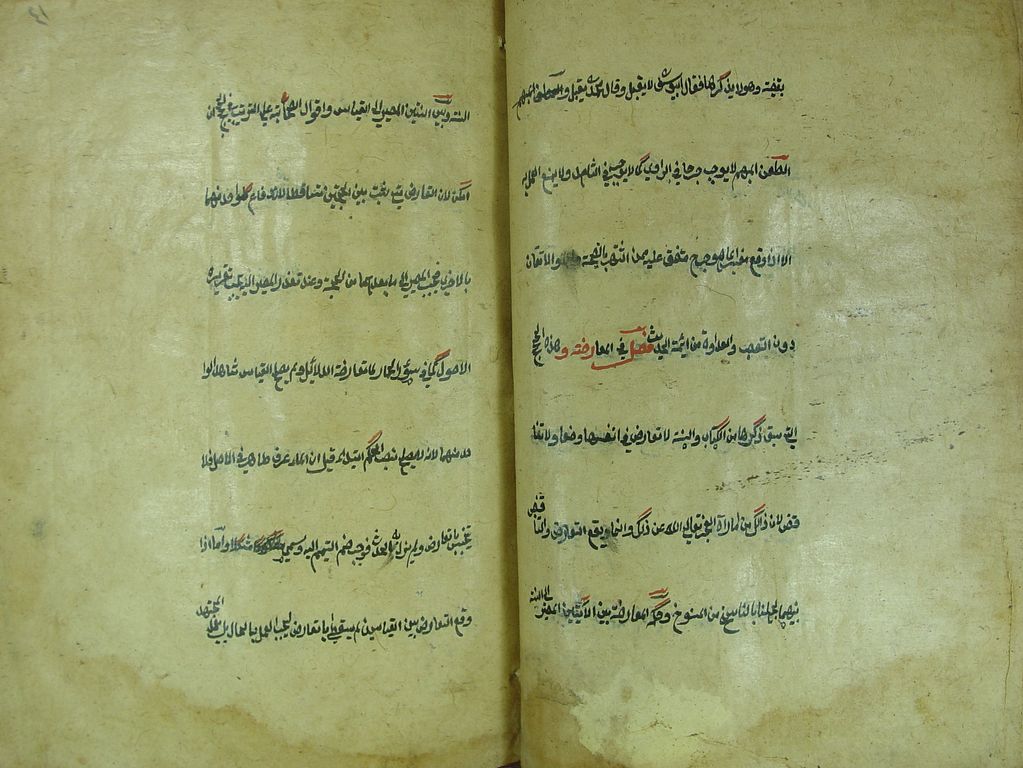 بقيته وهو لا يذكرها فقال ابو يوسف لا يقبل وقال محمد يقبل والطعن المبهم
الطعن المبهم لا يوجب جرحا في الراوي كما لا يوجبه في الشاهد ولا يمنع العمل به
الا اذا وقع مفسرا بما هو جرح متفق عليه ممن اشتهر بالنصيحة والاتقان
دون التعصب والعداوة من ائمة الحديث فصل في المعارضة وهذه الحجج
التي سبق ذكرها من الكتاب والسنة لا تعارض في انفسها وضعا ولا تنا
قض لان ذلك من امارات العجز تعالى الله عن ذلك وانما وقع التعارض والتناقض
بينهما لجهلنا بالناسخ من المنسوخ وحكم المعارضة بين الآيتين المصير الى السنة
السنة وبين السنتين المصير الى القياس واقوال الصحابة على الترتيب في الحجج ان
امكن لان التعارض متى ثبت بين الحجتين تساقطا لاندفاع كل واحدة منهما
بالاخرى فيجب المصير الى ما بعدهما من الحجة وعند تعذر المصير اليه يجب تقرير
الاصول كما في سؤر الحمار لما تعارضت الدلائل ولم يصلح القياس شاهدا
لانه لا يصلح لنصب الحكم ابتداء قيل ان الماء عرف طاهرا في الاصل فلا
يتنجس بالتعارض ولم يزل به الحدث فوجب ضم التيمم اليه وسمي مشكلا واما اذا
وقع التعارض بين القياسين لم يسقطا بالتعارض ليجب العمل بالحال بل يعمل المجتهد